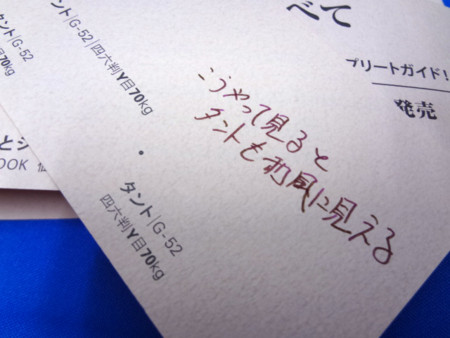 タント/G-52
タント/G-52
四六判Y目70kg
ブリートガイド!
発売
とジ
OOK
こうやって見ると
タントも和風に見える
・
タント/G-52
四六判Y目70kg